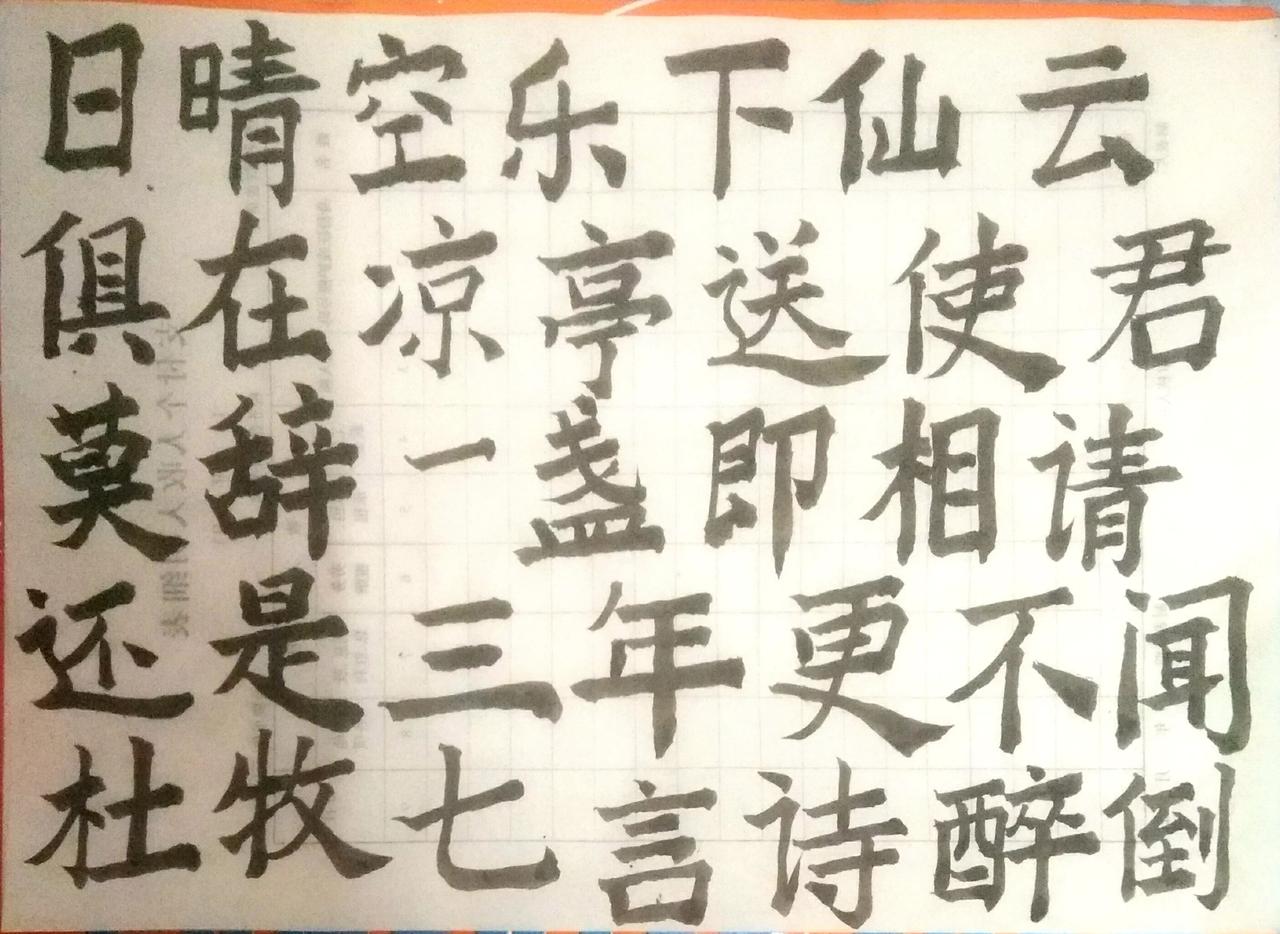 日晴空乐下仙云
俱在凉亭送使君
莫辞一盏即相请
还是三年更不闻
杜牧七言诗醉倒